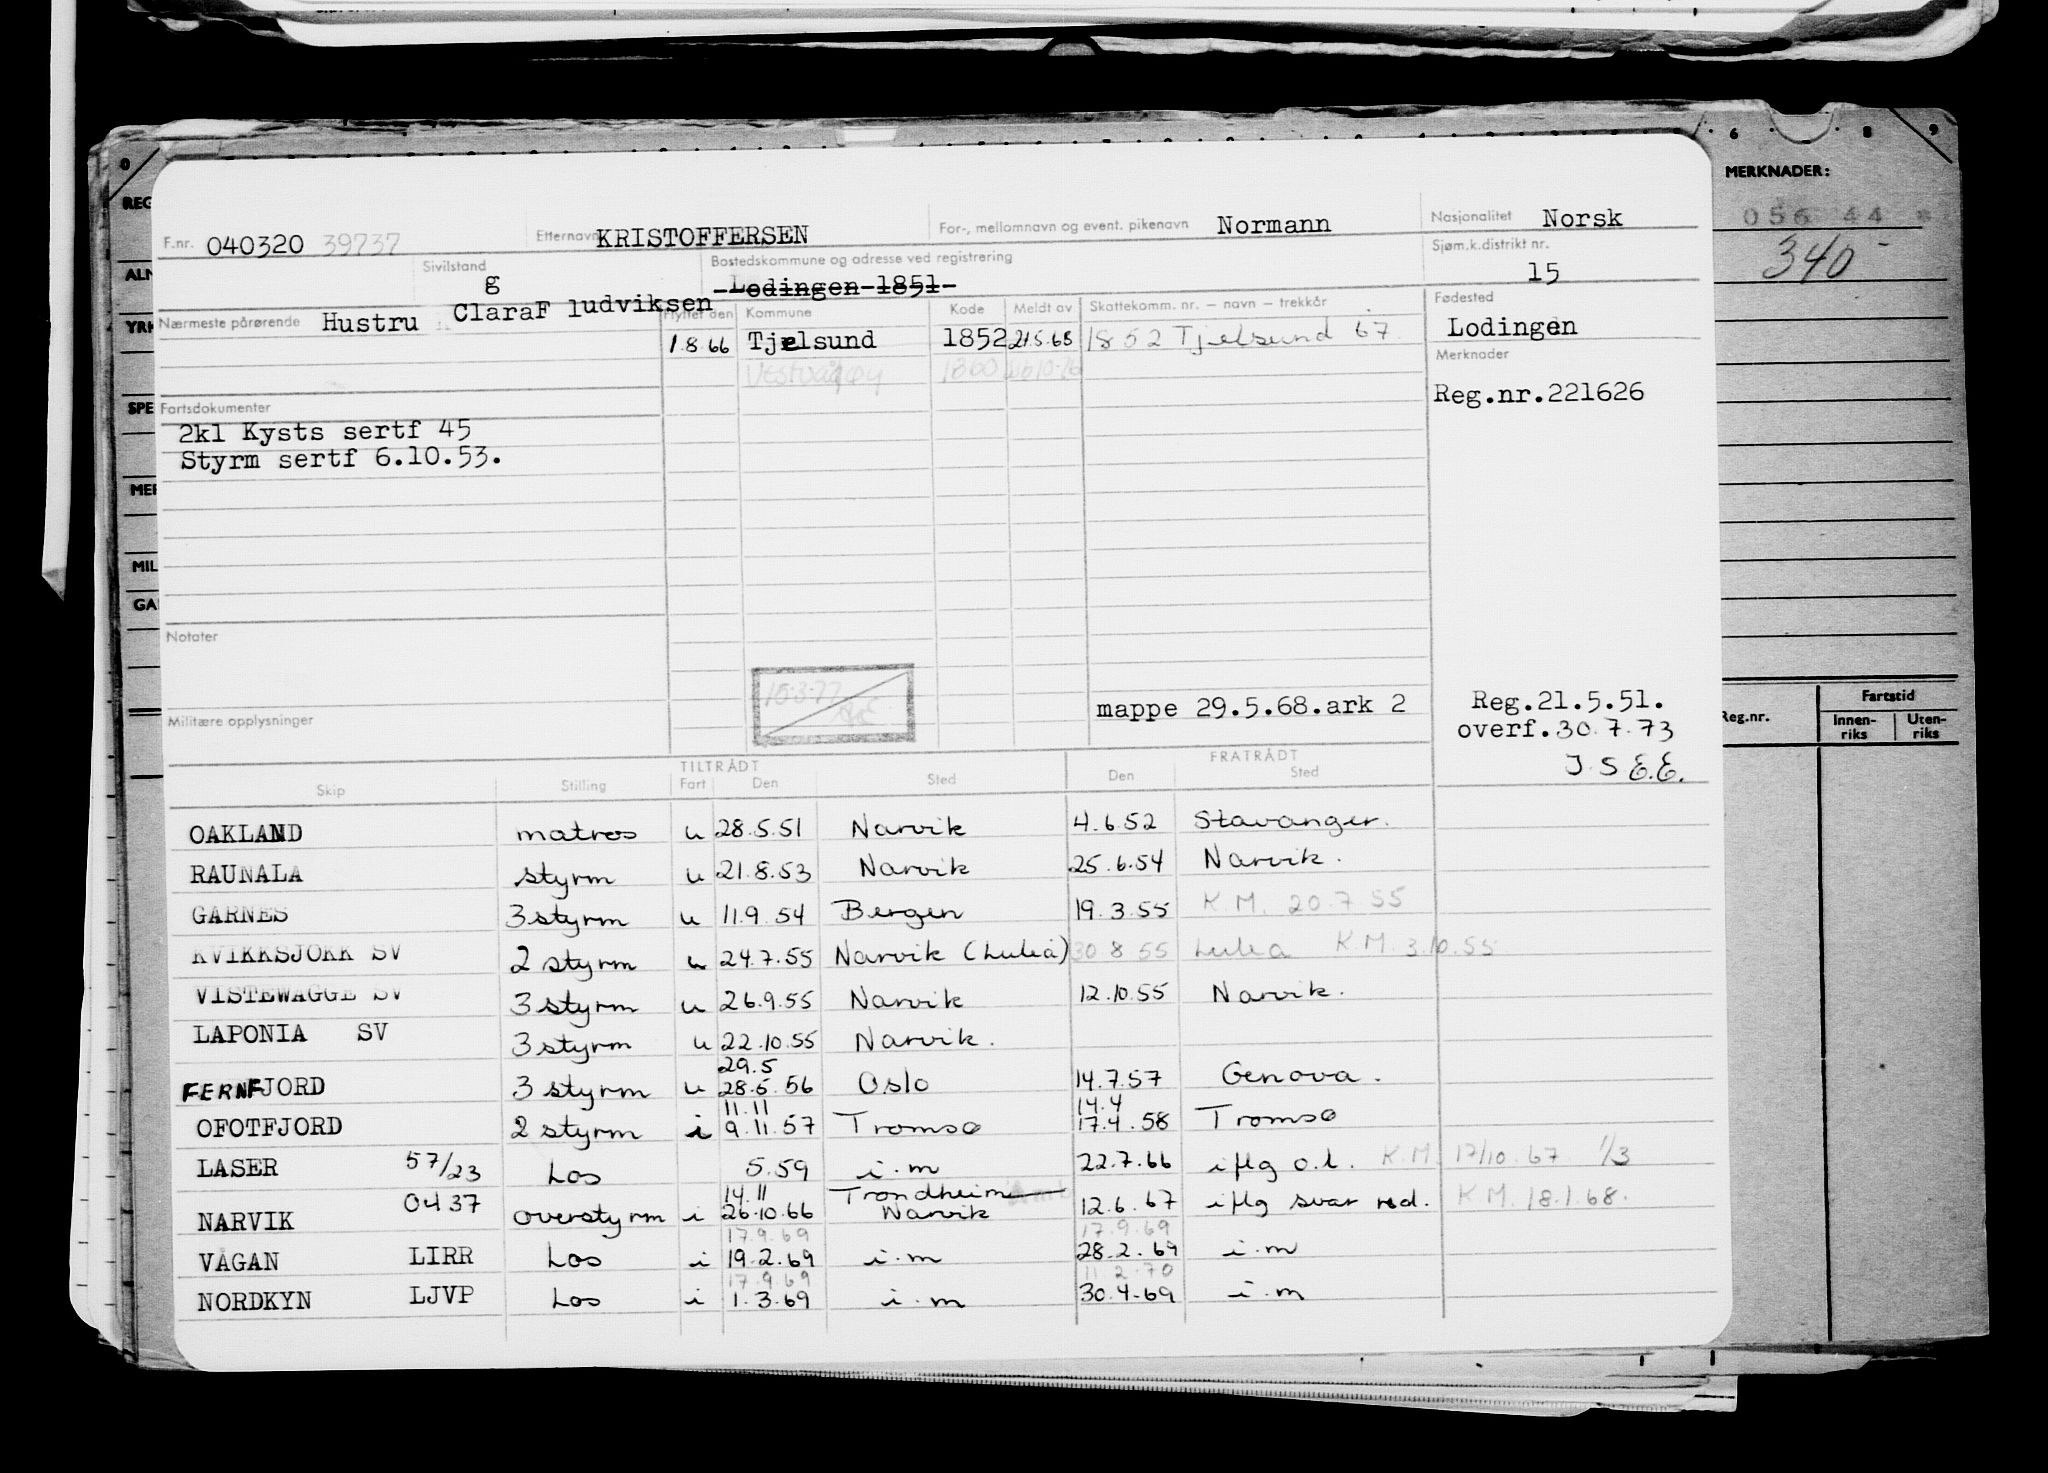 0 6 8 9
REG
MERKNADER:
056 44 *
340
F.nr. 040320 39737 Etternavn KRISTOFFERSEN For-, mellomnavn og event. pikenavn Normann Nasjonalitet Norsk
Sivilstand g Bostedskommune og adresse ved registrering Lodingen 1851 Sjøm.k.distrikt nr. 15
Nærmeste pårørende Hustru ClaraF ludviksen Flyttet den Kommune Kode Meldt av Skattekomm. nr. — navn — trekkår Fødested
1.8 66 Tjelsund 1852 21.5.68 1852 Tjelsund 67 Lodingen
Merknader
Reg.nr.221626
Fartsdokumenter
2kl Kysts sertf 45
Styrm sertf 6.10.53.
ALM
YRK
SPE
MER
MIL
GA
Notater
15.3.77
mappe 29.5.68.ark 2 Reg.21.5.51.
Militære opplysninger overf.30.7.73
J S E.E.
Reg.nr. Fartstid
Innen-riks Uten-riks
TILTRÅDT FRATRÅDT
Skip Stilling Fart Den Sted Den Sted
OAKLAND matros u 28.5.51 Narvik 4.6.52 Stavanger.
RAUNALA styrm u 21.8.53 Narvik 25.6.54 Narvik.
GARNES 3 styrm u 11.9.54 Bergen 19.3.55 K.M. 20.7.55
KVIKKSJOKK SV 2 styrm u 24.7.55 Narvik (Luleå) 30 8 55 Lulea K.M. 3.10.55
VISTEWAGGE SV 3 styrm u 26.9.55 Narvik 12.10.55 Narvik.
LAPONIA SV 3 styrm u 22.10.55 Narvik.
29.5
FERNFJORD 3 styrm u 28.5.56 Oslo 14.7.57 Genova.
11.11 14.4
OFOTFJORD 2 styrm i 9.11.57 Tromsø 17.4.58 Tromsø
LASER 57/23 Los 5.59 i.m 22.7.66 iflg o.l. K.M. 17/10.67 1/3
14.11 Trondheim
NARVIK 0437 overstyrm i 26.10.66 Narvik 12.6.67 iflg svar red. K.M. 18.1.68.
17.9.69 17.9.69
VÅGAN LIRR Los i 19.2.69 i.m 28.2.69 i.m
17.9.69 11.2.70
NORDKYN LJVP Los i 1.3.69 i.m 30.4.69 i.m